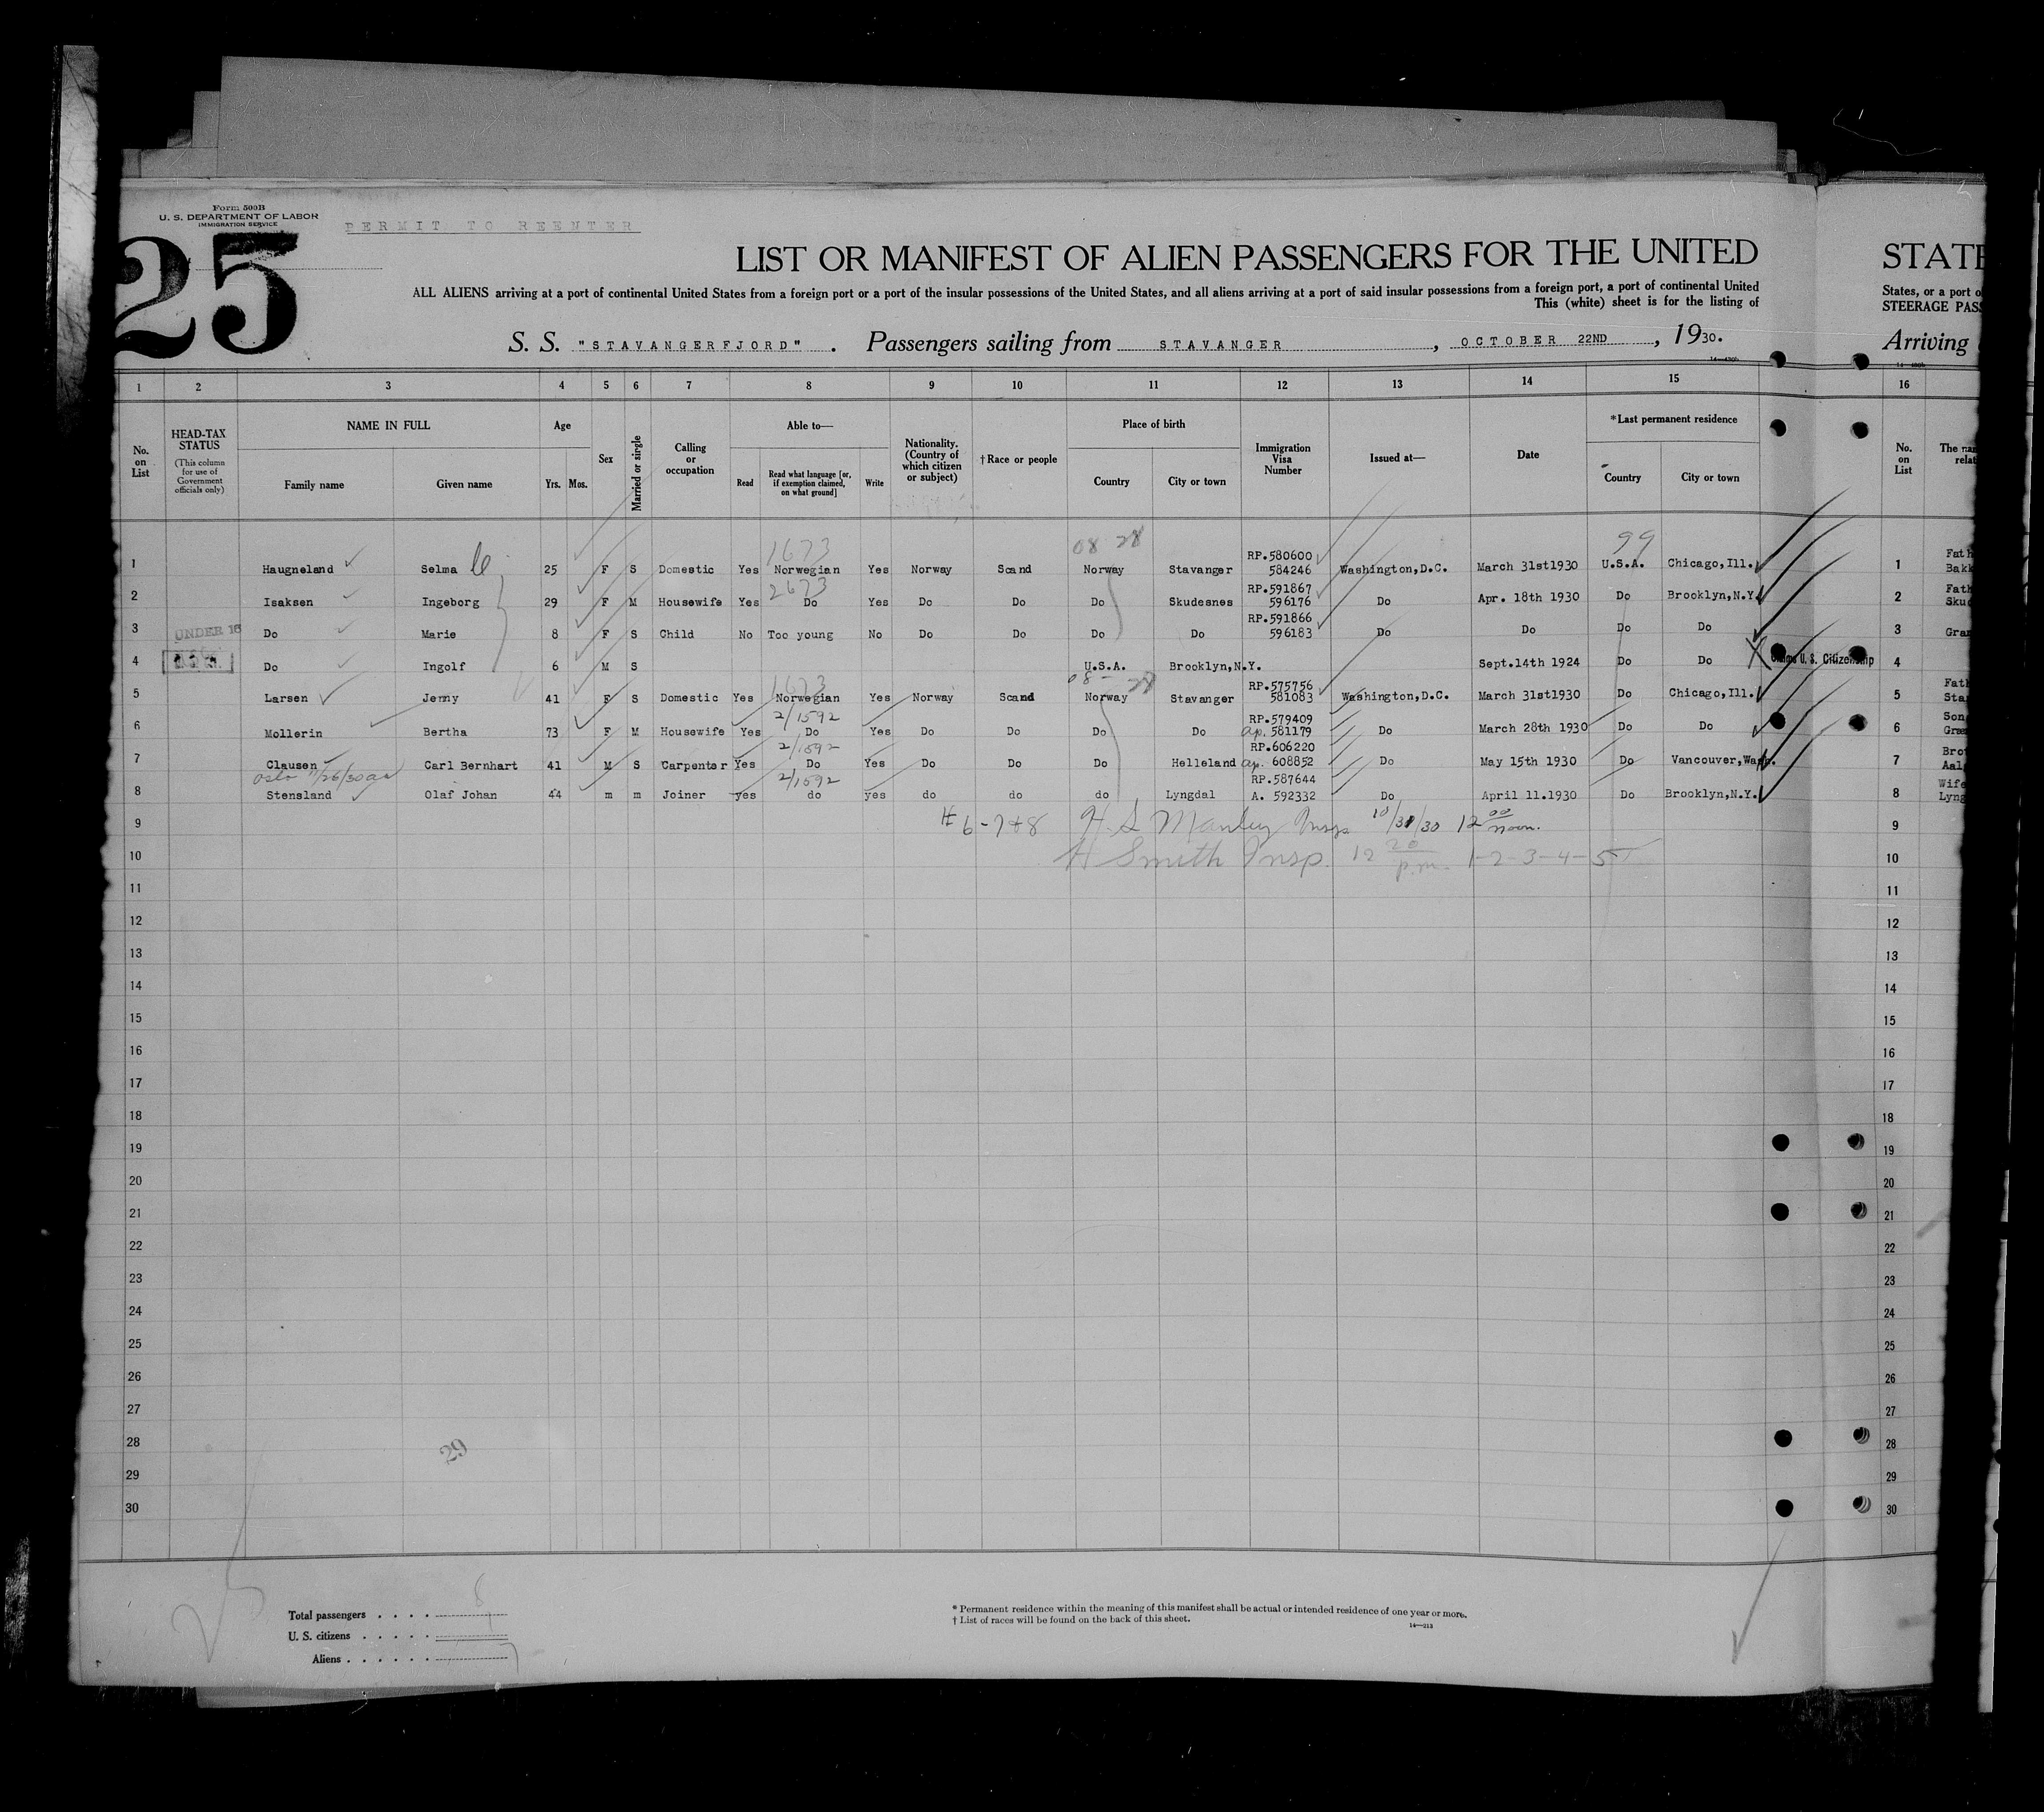 Form 500B
U. S. DEPARTMENT OF LABOR
IMMIGRATION SERVICE
PERMIT TO REENTER
25
LIST OR MANIFEST OF ALIEN PASSENGERS FOR THE UNITED
STATE
ALL ALIENS arriving at a port of continental United States from a foreign port or a port of the insular possessions of the United States, and all aliens arriving at a port of said insular possessions from a foreign port, a port of continental United
States, or a port o
This (white) sheet is for the listing of
STEERAGE PAS
S. S. "STAVANGERFJORD". Passengers sailing from STAVANGER, OCTOBER 22ND, 1930.
Arriving
1 2 3 4 5 6 7 8 9 10 11 12 13 14 15 16
No. on List
HEAD-TAX STATUS
(This column for use of Government officials only)
NAME IN FULL
Family name Given name
Age
Yrs. Mos.
Sex
Married or single
Calling or occupation
Able to—
Read
Read what language [or, if exemption claimed, on what ground]
Write
Nationality. (Country of which citizen or subject)
†Race or people
Place of birth
Country City or town
Immigration Visa Number
Issued at—
Date
*Last permanent residence
Country City or town
No. on List
1673 08 28 99
1 Haugneland Selma 25 F S Domestic Yes Norwegian Yes Norway Scand Norway Stavanger RP.580600 584246 Washington,D.C. March 31st1930 U.S.A. Chicago,Ill. 1 Fath
2673
2 Isaksen Ingeborg 29 F M Housewife Yes Do Yes Do Do Do Skudesnes RP.591867 596176 Do Apr. 18th 1930 Do Brooklyn,N.Y. 2 Fath
3 UNDER 16 Do Marie 8 F S Child No Too young No Do Do Do Do RP.591866 596183 Do Do Do Do 3
4 Do Ingolf 6 M S U.S.A. Brooklyn,N.Y. Sept.14th 1924 Do Do U. S. Citizenship 4
1673 08 – 28
5 Larsen Jenny 41 F S Domestic Yes Norwegian Yes Norway Scand Norway Stavanger RP.575756 581083 Washington,D.C. March 31st1930 Do Chicago,Ill. 5 Fath
2/1592
6 Mollerin Bertha 73 F M Housewife Yes Do Yes Do Do Do Do RP.579409 ap. 581179 Do March 28th 1930 Do Do 6 Son
2/1592
7 Clausen Carl Bernhart 41 M S Carpenter Yes Do Yes Do Do Do Helleland RP.606220 ap. 608852 Do May 15th 1930 Do Vancouver,Wash. 7
Oslo 11/26/30
2/1592
8 Stensland Olaf Johan 44 m m Joiner yes do yes do do do Lyngdal RP.587644 A. 592332 Do April 11.1930 Do Brooklyn,N.Y. 8 Wife
9 # 6-7+8 H.S. Manley Insp 10/31/30 12 00 noon. 9
10 H Smith Insp. 12 20 p.m. 1-2-3-4-5 10
11 11
12 12
13 13
14 14
15 15
16 16
17 17
18 18
19 19
20 20
21 21
22 22
23 23
24 24
25 25
26 26
27 27
28 29 28
29 29
30 30
25
Total passengers . . . . 8
U. S. citizens . . . . . 1
Aliens . . . . . . 7
* Permanent residence within the meaning of this manifest shall be actual or intended residence of one year or more.
† List of races will be found on the back of this sheet.
14—213